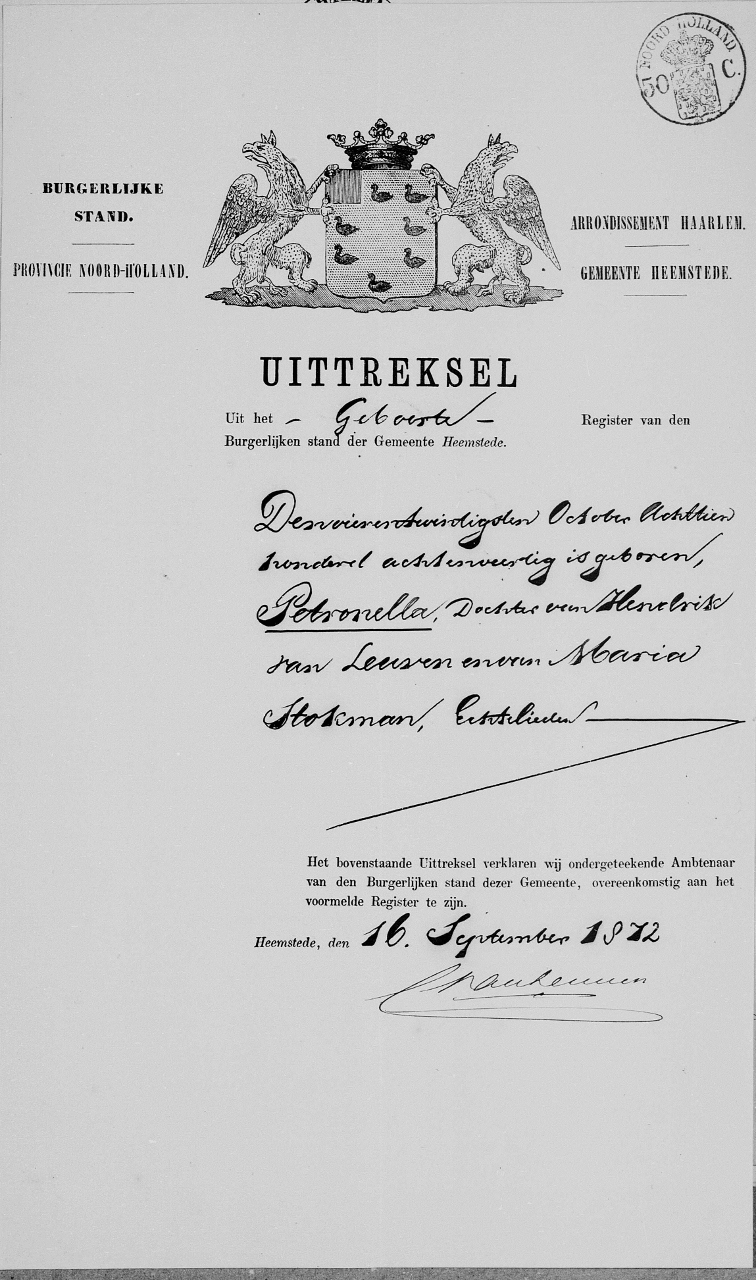 NOORD HOLLAND
50 C.
BURGERLIJKE
STAND.
PROVINCIE NOORD-HOLLAND.
ARRONDISSEMENT HAARLEM.
GEMEENTE HEEMSTEDE.
UITTREKSEL
Uit het – Geboorte – Register van den
Burgerlijken stand der Gemeente Heemstede.
Den vierentwintigsten October Achttien
honderd achtenveertig is geboren,
Petronella, Dochter van Hendrik
van Leeuwen en van Maria
Stokman, Echtelieden
Het bovenstaande Uittreksel verklaren wij ondergeteekende Ambtenaar
van den Burgerlijken stand dezer Gemeente, overeenkomstig aan het
voormelde Register te zijn.
Heemstede, den 16. September 1872